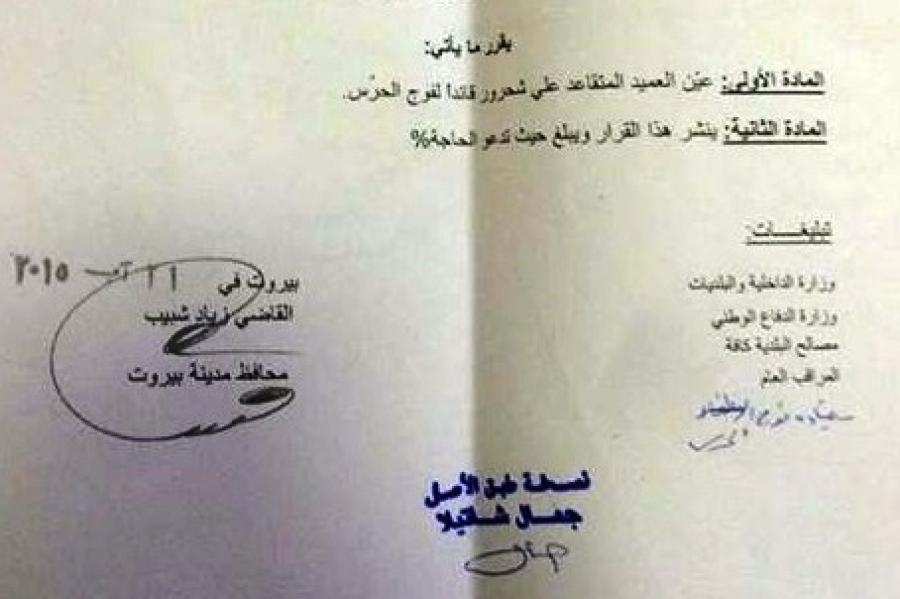 يقرر ما يأتي:
المادة الأولى: عيّن العميد المتقاعد علي شحرور قائداً لفوج الحرّس.
المادة الثانية: ينشر هذا القرار ويبلغ حيث تدعو الحاجة%
تبليغـــات:
وزارة الداخلية والبلديات
وزارة الدفاع الوطني
مصالح البلدية كافة
المراقب العام
بيروت في ١١ آب ٢٠١٥
القاضي زياد شبيب
محافظ مدينة بيروت
نسخة طبق الأصل
جمال شاتيلا